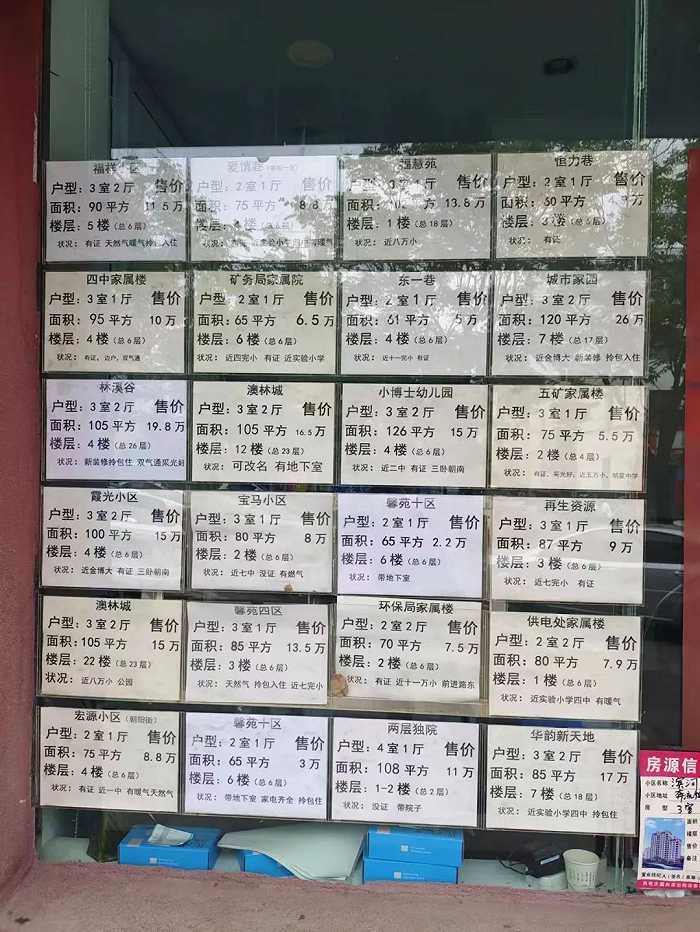 福祥小区
户型：3室2厅 售价
面积：90平方 11.5万
楼层：5楼（总6层）
状况：有证 天然气暖气拎包入住
爱情巷
户型：2室1厅 售价
面积：75平方 8.8万
楼层：
状况：
福慧苑
售价
13.8万
楼层：1楼（总18层）
状况：近八万小
恒力巷
户型：2室1厅 售价
面积：60平方
楼层：3楼（总6层）
状况：有证
四中家属楼
户型：3室1厅 售价
面积：95平方 10万
楼层：4楼（总6层）
状况：有证，边户，双气通
矿务局家属院
户型：2室1厅 售价
面积：65平方 6.5万
楼层：6楼（总6层）
状况：近四完小 有证 近实验小学
东一巷
户型：2室1厅 售价
面积：61平方 5万
楼层：4楼（总6层）
状况：近十一完小 有证
城市家园
户型：3室2厅 售价
面积：120平方 26万
楼层：7楼（总17层）
状况：近金博大 新装修 拎包入住
林溪谷
户型：3室2厅 售价
面积：105平方 19.8万
楼层：4楼（总26层）
状况：新装修拎包住 双气通采光好
澳林城
户型：3室2厅 售价
面积：105平方 16.5万
楼层：12楼（总23层）
状况：可改名 有地下室
小博士幼儿园
户型：3室2厅 售价
面积：126平方 15万
楼层：4楼（总6层）
状况：近二中 有证 三卧朝南
五矿家属楼
户型：3室1厅 售价
面积：75平方 5.5万
楼层：2楼（总4层）
状况：有证，采光好，近五万小，明星中学
霞光小区
户型：3室2厅 售价
面积：100平方 15万
楼层：4楼（总6层）
状况：近金博大 有证 三卧朝南
宝马小区
户型：3室1厅 售价
面积：80平方 8万
楼层：2楼（总6层）
状况：近七中 没证 有燃气
馨苑十区
户型：2室1厅 售价
面积：65平方 2.2万
楼层：6楼（总6层）
状况：带地下室
再生资源
户型：3室1厅 售价
面积：87平方 9万
楼层：3楼（总6层）
状况：近七完小 有证
澳林城
户型：3室2厅 售价
面积：105平方 15万
楼层：22楼（总23层）
状况：近八万小 公园
馨苑四区
户型：3室1厅 售价
面积：85平方 13.5万
楼层：3楼（总6层）
状况：天然气 拎包入住 近七完小
环保局家属楼
户型：2室2厅 售价
面积：70平方 7.5万
楼层：2楼（总6层）
状况：有证 近十一万小 前进路东
供电处家属楼
户型：2室2厅 售价
面积：80平方 7.9万
楼层：1楼（总6层）
状况：近实验小学四中 有暖气
宏源小区（朝阳街）
户型：2室1厅 售价
面积：75平方 8.8万
楼层：4楼（总6层）
状况：有证 近一中 有暖气天然气
馨苑十区
户型：2室1厅 售价
面积：65平方 3万
楼层：6楼（总6层）
状况：带地下室 家电齐全 拎包住
两层独院
户型：4室1厅 售价
面积：108平方 11万
楼层：1-2楼（总2层）
状况：没证 带院子
华韵新天地
户型：2室2厅 售价
面积：85平方 17万
楼层：7楼（总18层）
状况：近实验小学四中 拎包住
房源信
小区名称
小区地址
户型 3室
面积
楼层
售价
备注